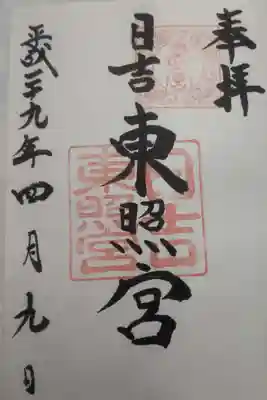 奉拝
日吉東照宮
平成二十九年四月九日
日吉東照宮